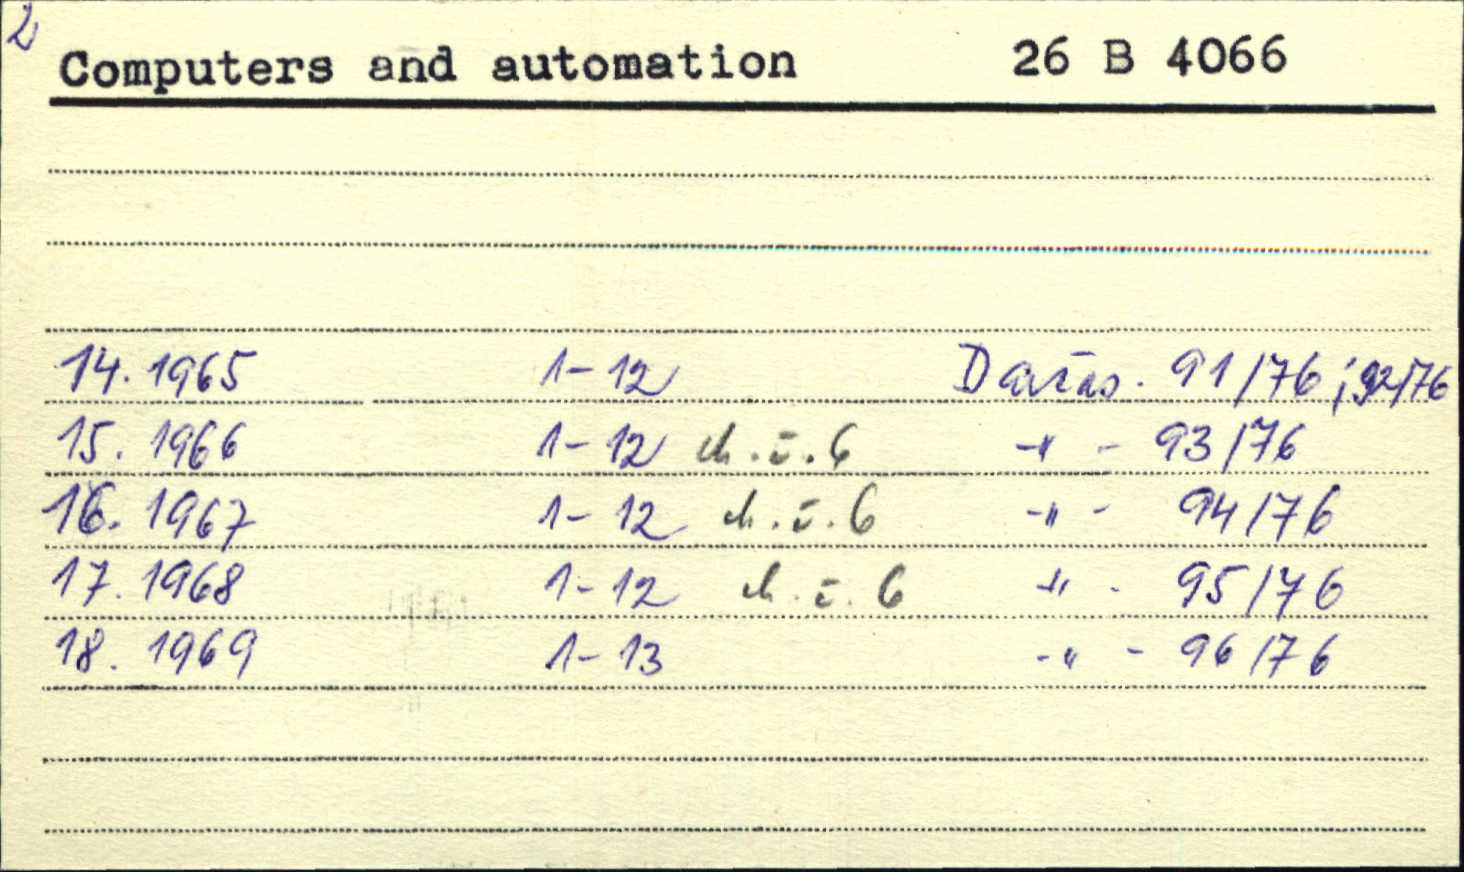 2
Computers and automation 26 B 4066
14. 1965 1-12 Darčas. 91/76; 92/76
15. 1966 1-12 ch. č. 6 -"- 93/76
16. 1967 1-12 ch. č. 6 -"- 94/76
17. 1968 1-12 ch. č. 6 -"- 95/76
18. 1969 1-13 -"- 96/76